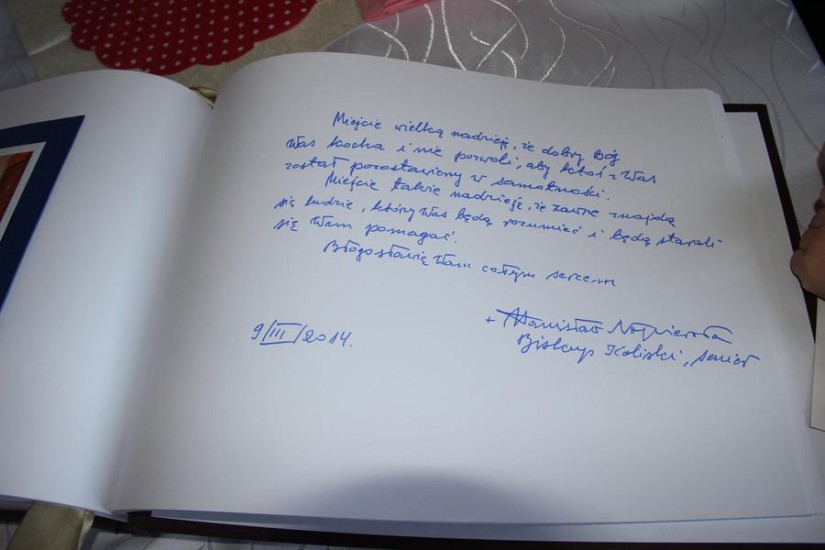 Miejcie wielką nadzieję, że dobry Bóg
Was kocha i nie pozwoli, aby ktoś z Was
został pozostawiony w samotności.
Miejcie także nadzieję, że zawsze znajdą
się ludzie, którzy Was będą rozumieć i będą starali
się Wam pomagać.
Błogosławię Wam całym sercem
9/III/2014.
+ Stanisław Napierała
Biskup Kaliski, senior